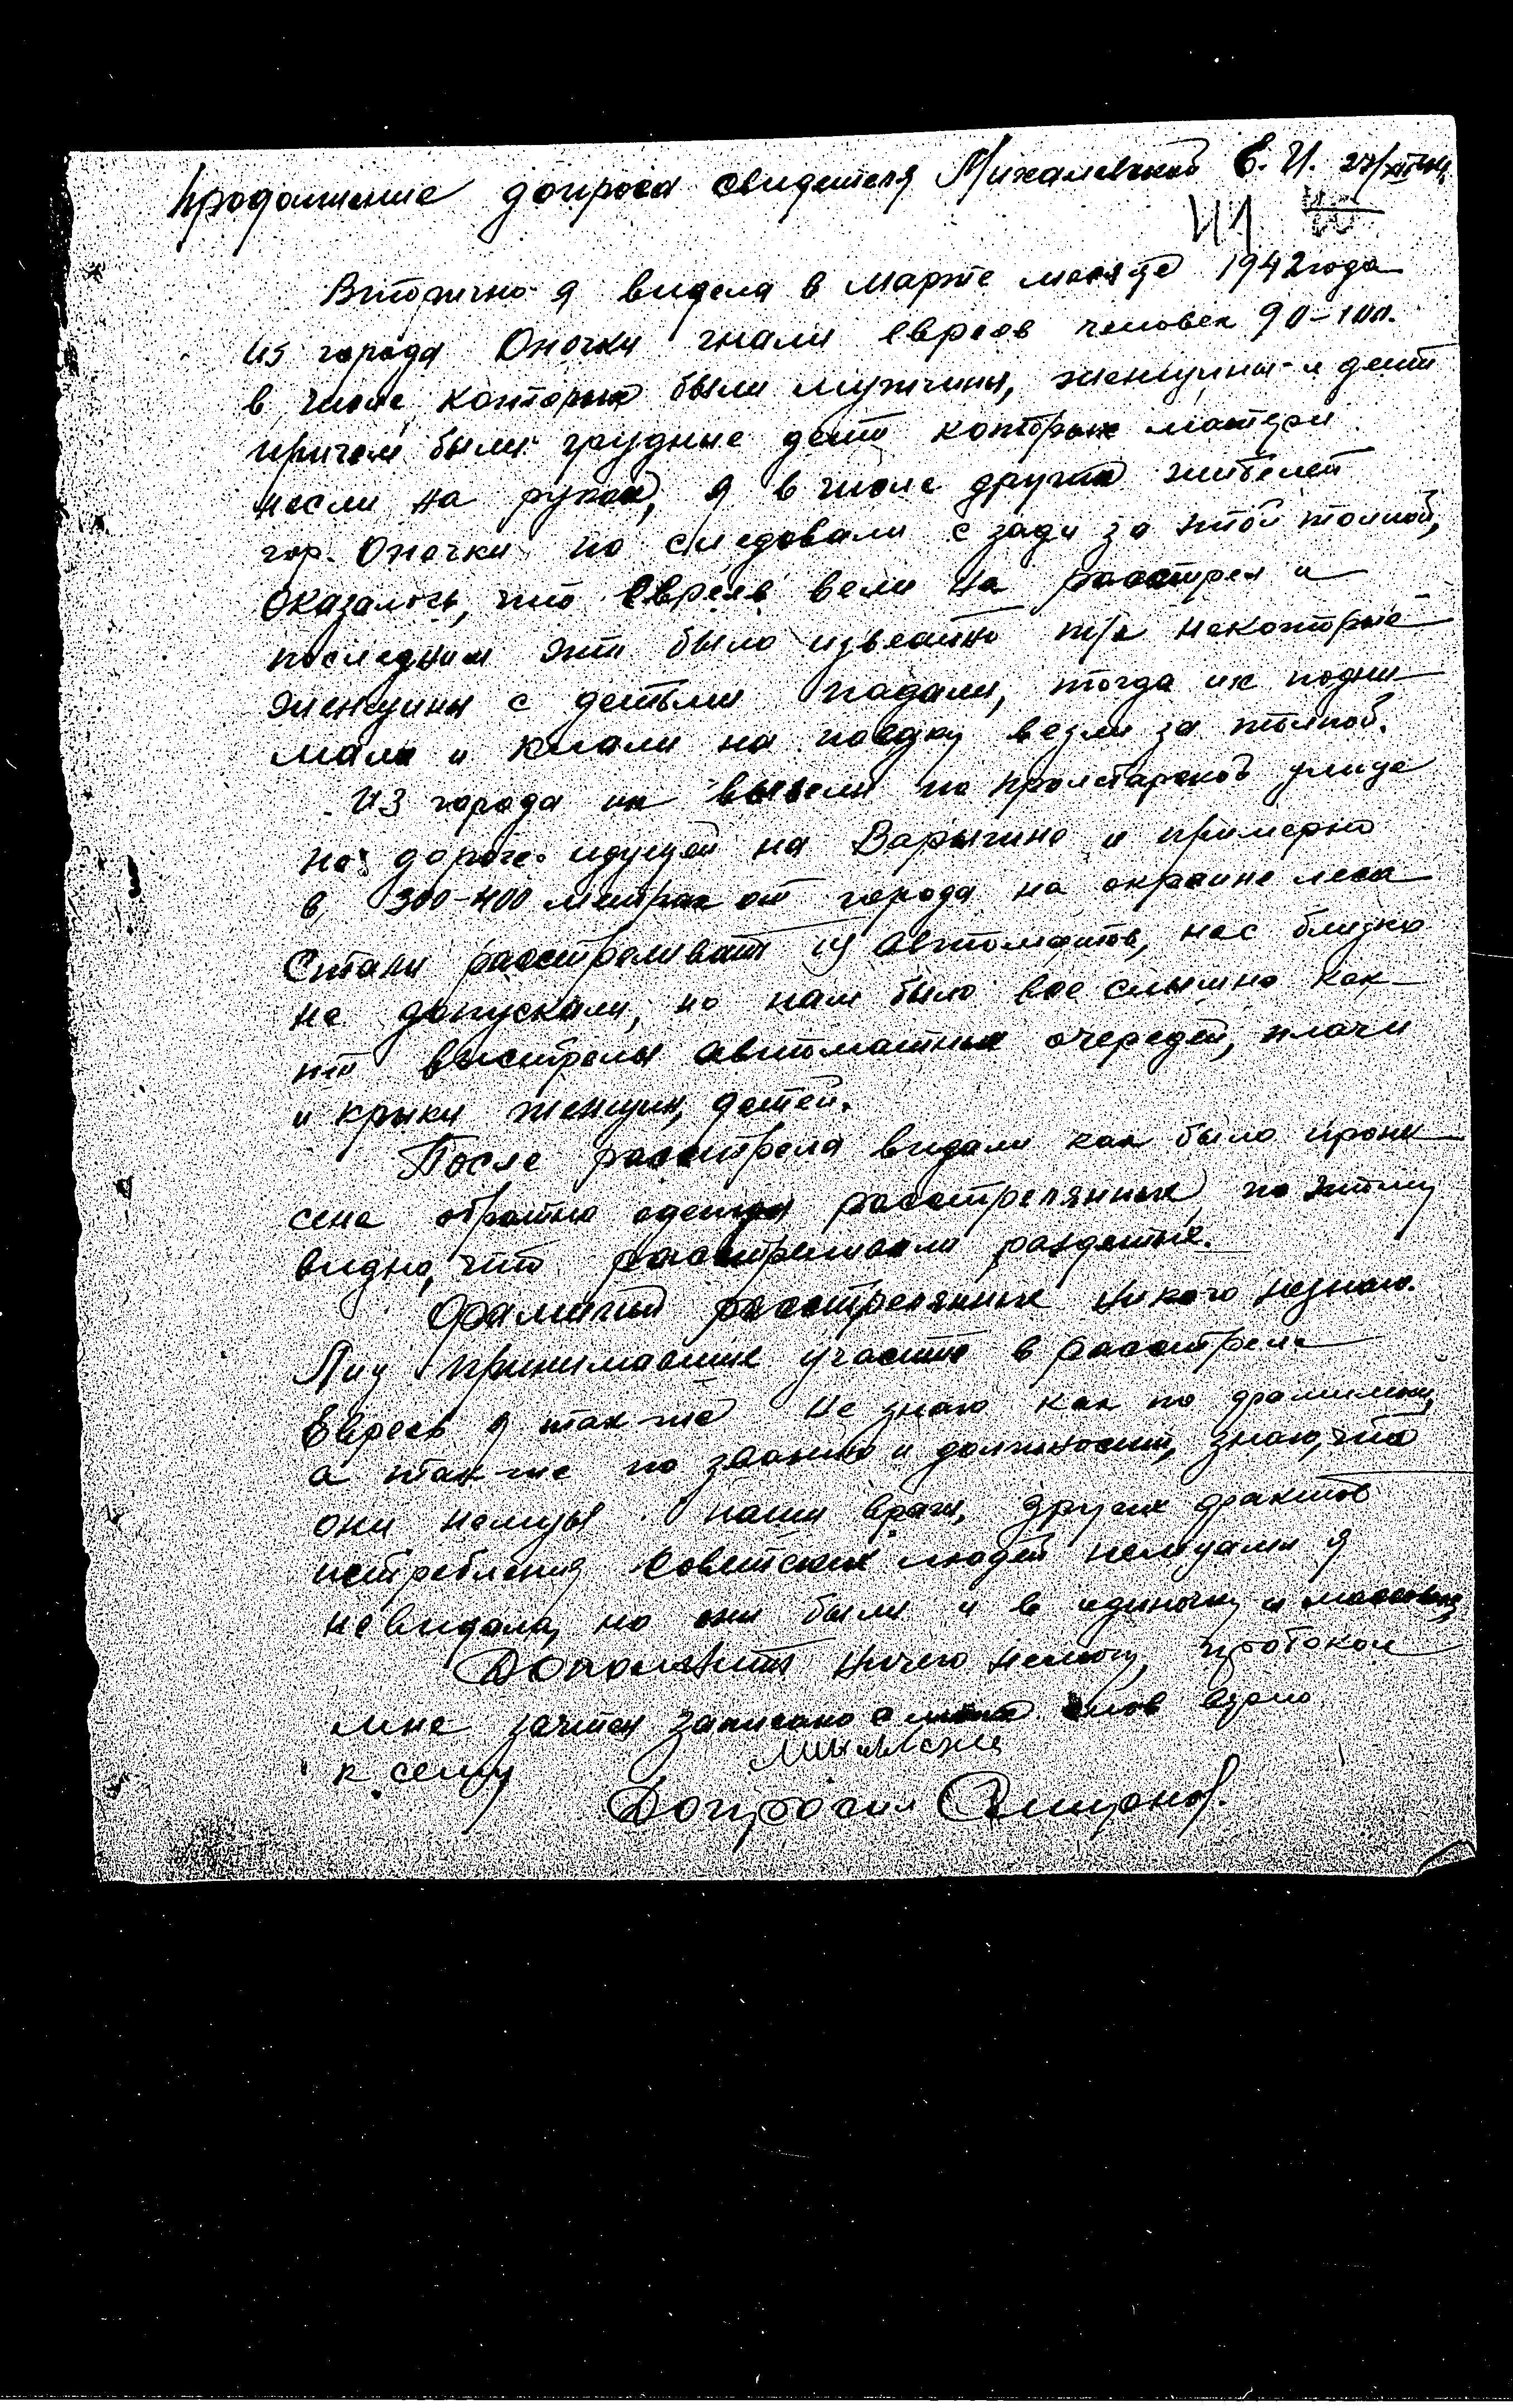 Продолжение допроса свидетеля Михалевской Е. И. 27/XII 44
41 40
Вторично я видела в марте месяце 1942 года
из города Опочки гнали евреев человек 90-100.
в числе которых были мужчины, женщины и дети
причем были грудные дети которых матери
несли на руках, я в числе других жителей
гор. Опочки по следовали с зади за этой толпой,
оказалось, что евреев вели на расстрел и
последним это было известно т/к некоторые
женщины с детьми падали, тогда их подни
мали и клали на повдку везли за толпой.
Из города их вывели по пролетарской улице
по дороге идущей на Варыгино и примерно
в 300-400 метрах от города на окраине леса
Стали расстреливать из автоматов, нас близко
не допускали, но нам было все слышно как-
то выстрелы автоматных очередей, плачи
и крыки женщин, детей.
После расстрела видали как было прони
сена обратно одежда расстрелянных, по этому
видно, что расстреливали раздетые.
Фамилий расстрелянных никого незнаю.
Лиц принимавших участие в расстреле
Евреев я так-же не знаю как по фамилиям,
а так-же по званию и должности, знаю, что
они немцы наши враги, других фактов
истребления Советских людей немцами я
невидала, но они были и в одиночку и массовые
Дополнить ничего немогу, протокол
мне зачитан записано с моих слов верно
к сему
Допросил Смирнов.